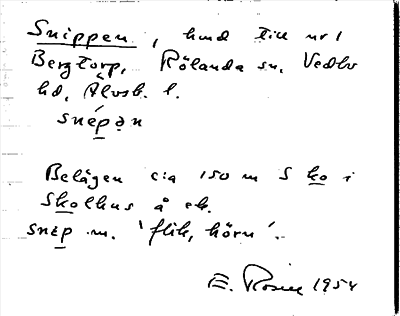 Snippen, hmd till nr 1
Bergtorp, Rölanda sn, Vedbo
hd, Älvsb. l.
snépən
Belägen c:a 150 m S ko i
Skolhus å ek.
snep m. 'flik, hörn'.
E. Rosén 1954